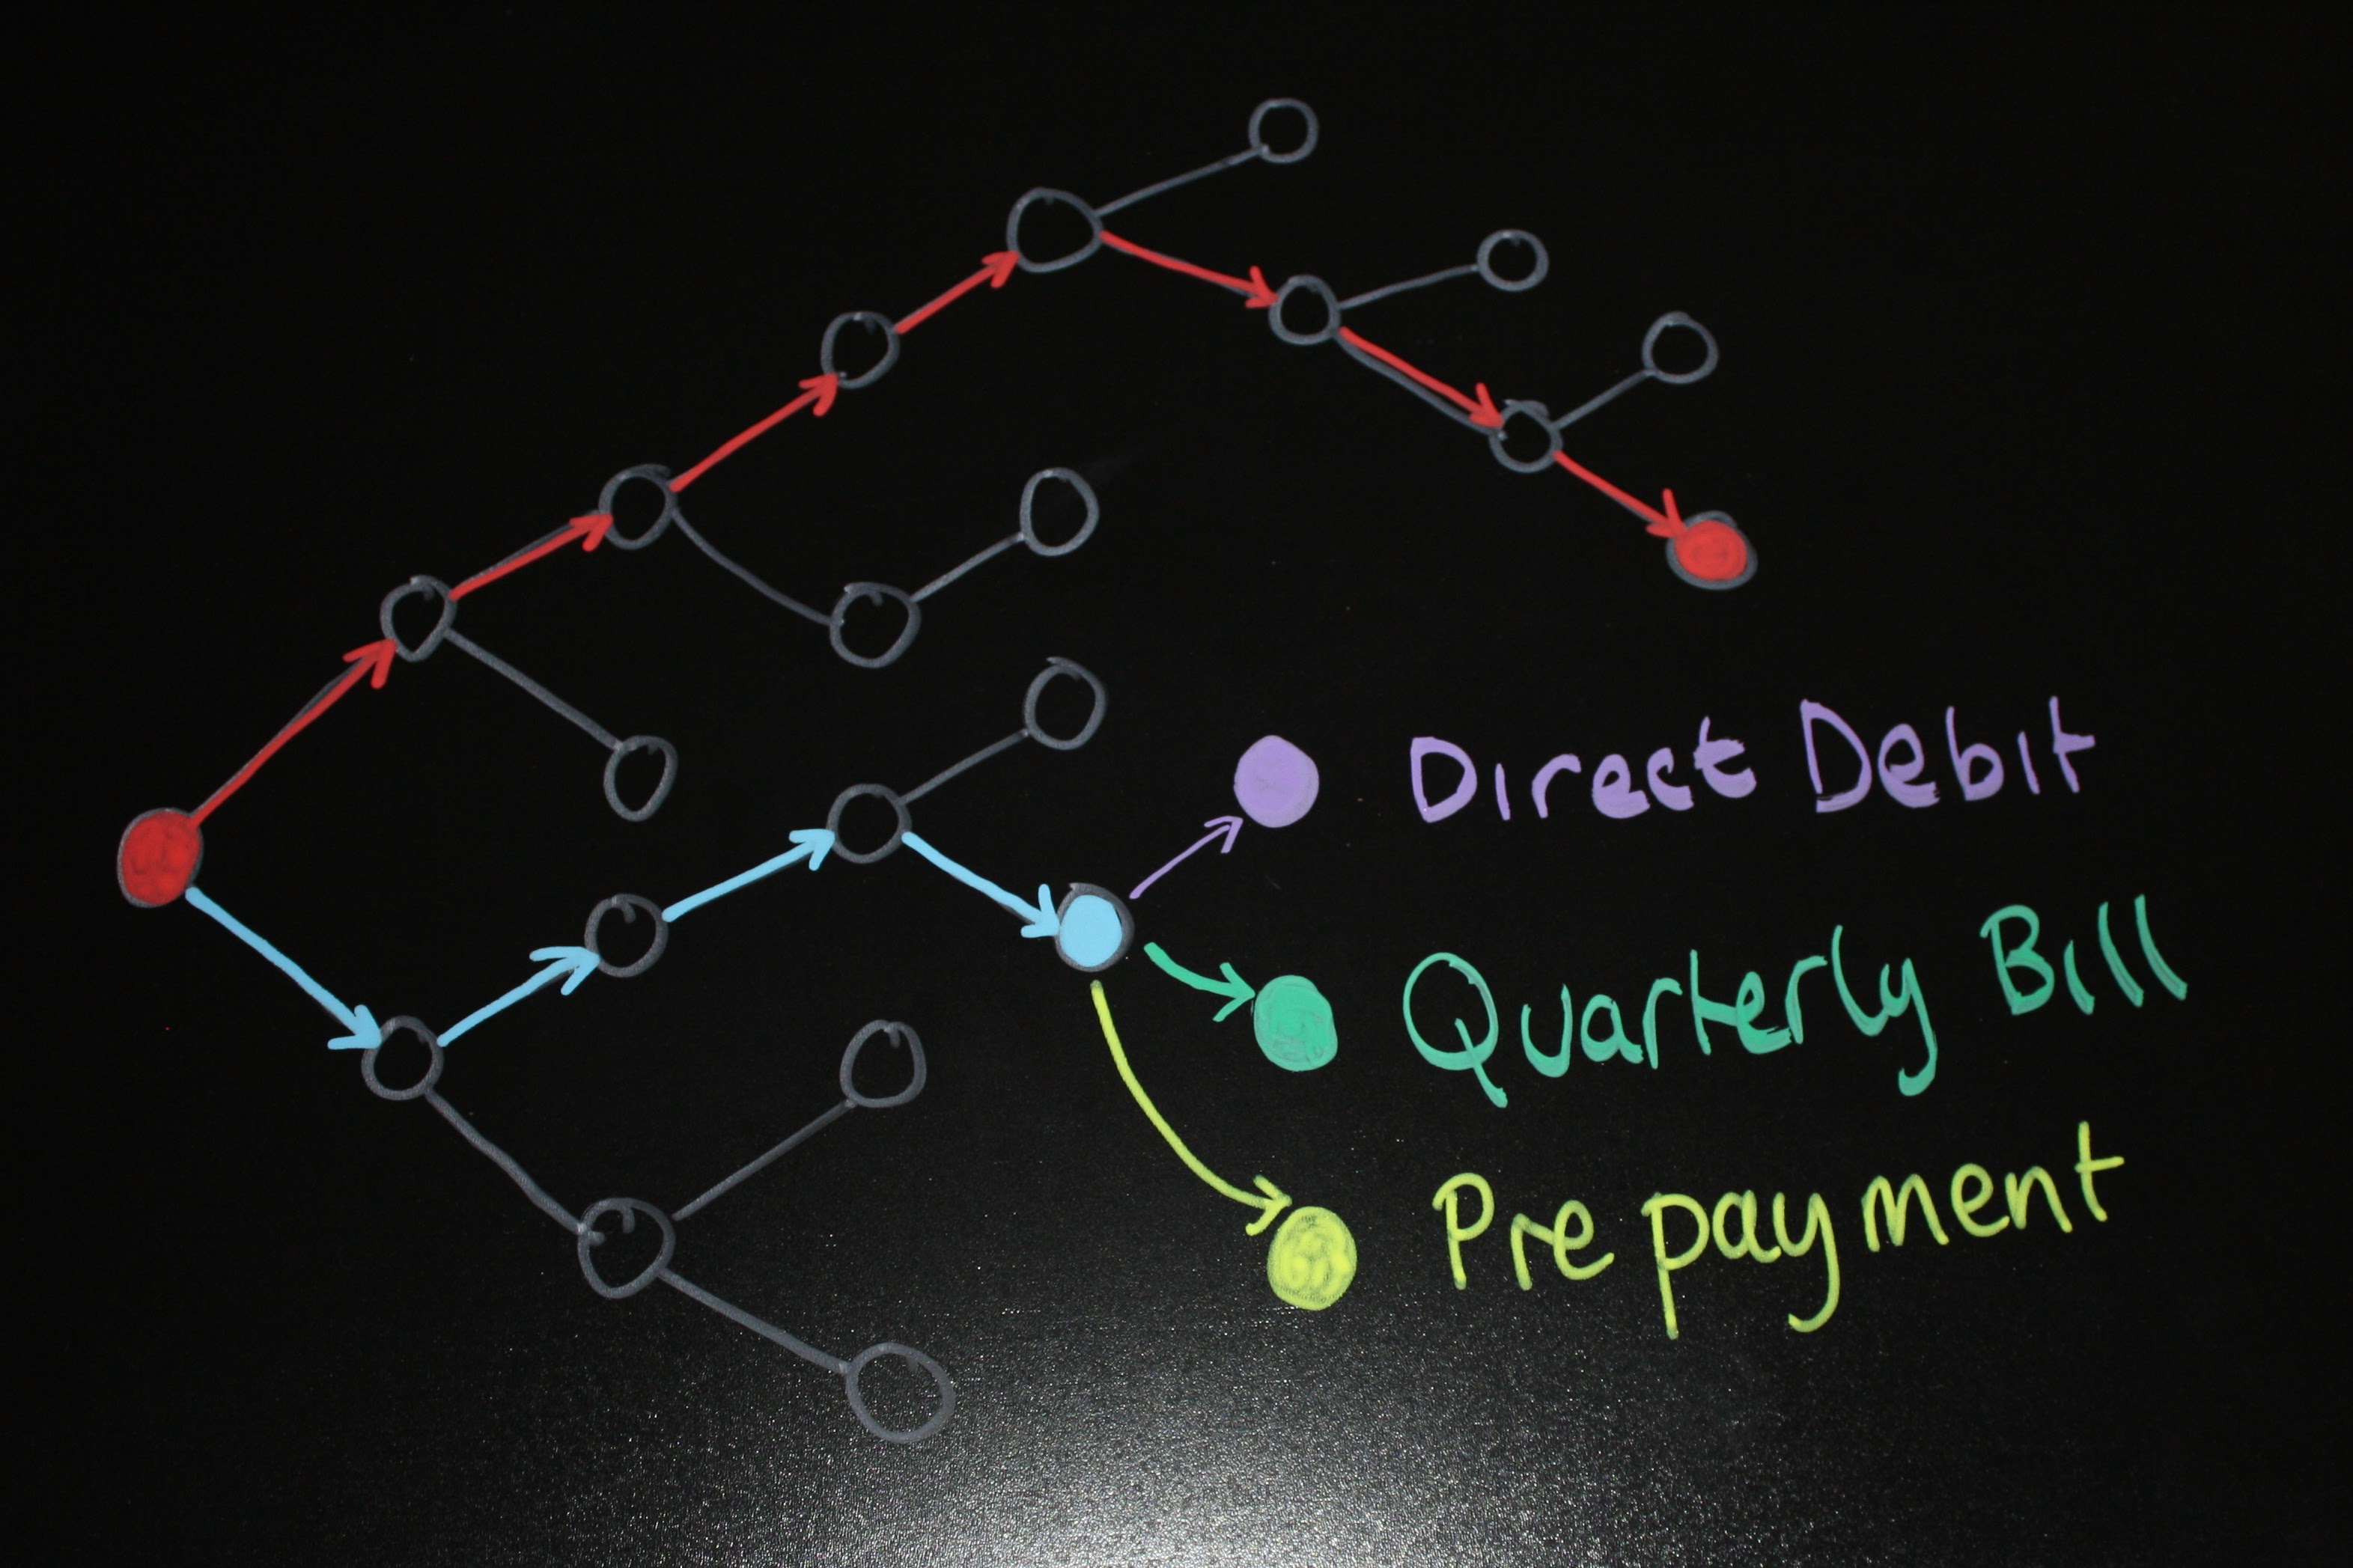 Direct Debit
Quarterly Bill
Pre payment